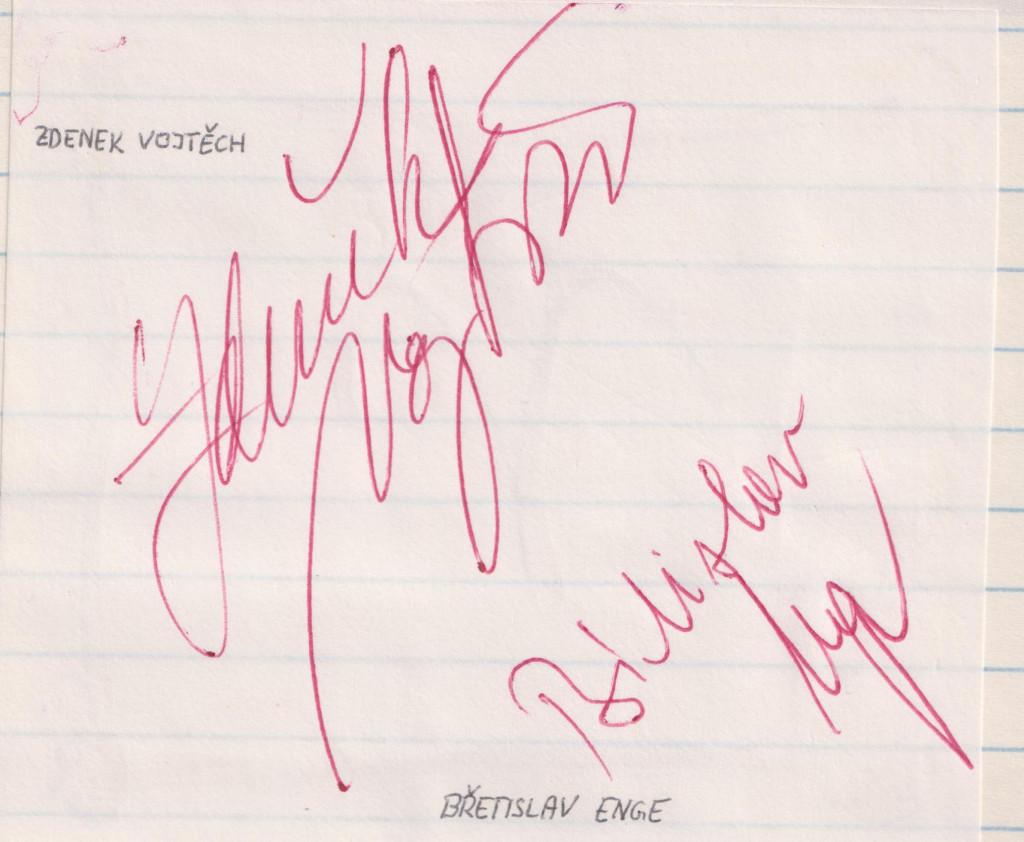 ZDENEK VOJTĚCH
Zdeněk
Břetislav
Enge
BŘETISLAV ENGE